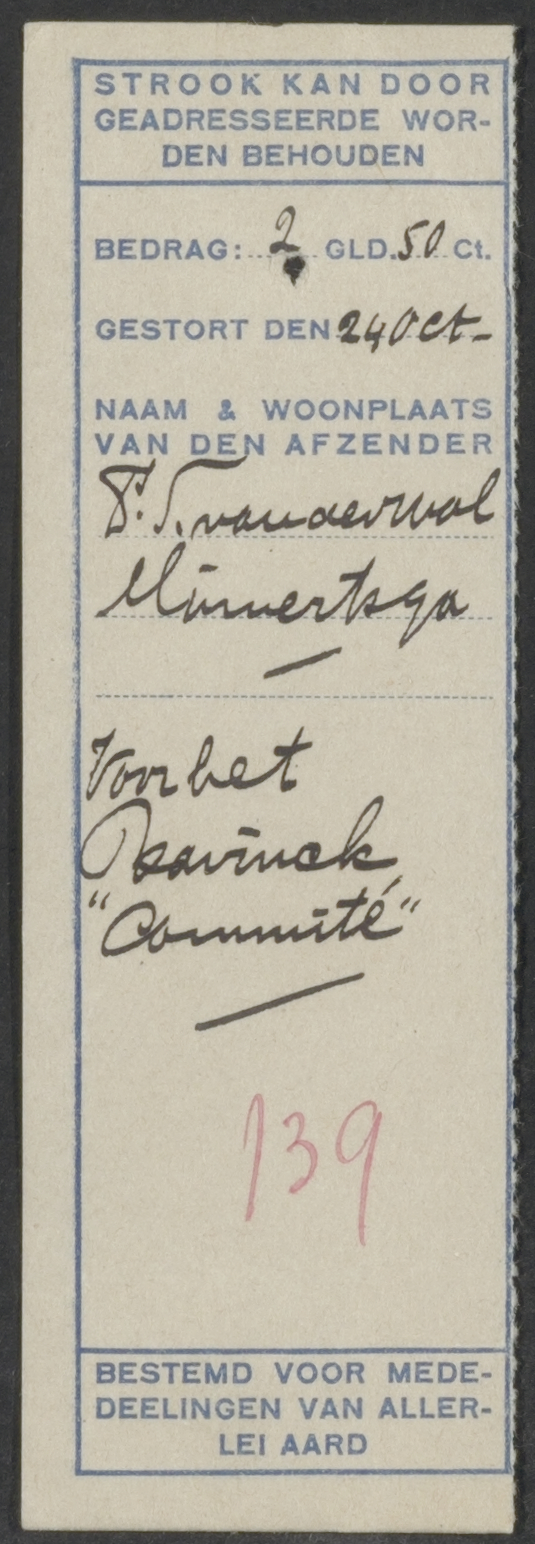 STROOK KAN DOOR
GEADRESSEERDE WOR-
DEN BEHOUDEN
BEDRAG: 2 GLD. 50 Ct.
GESTORT DEN 24 Oct-
NAAM & WOONPLAATS
VAN DEN AFZENDER
v.d. Wal
Voor het
Bavinck
"Commité"
139
BESTEMD VOOR MEDE-
DEELINGEN VAN ALLER-
LEI AARD